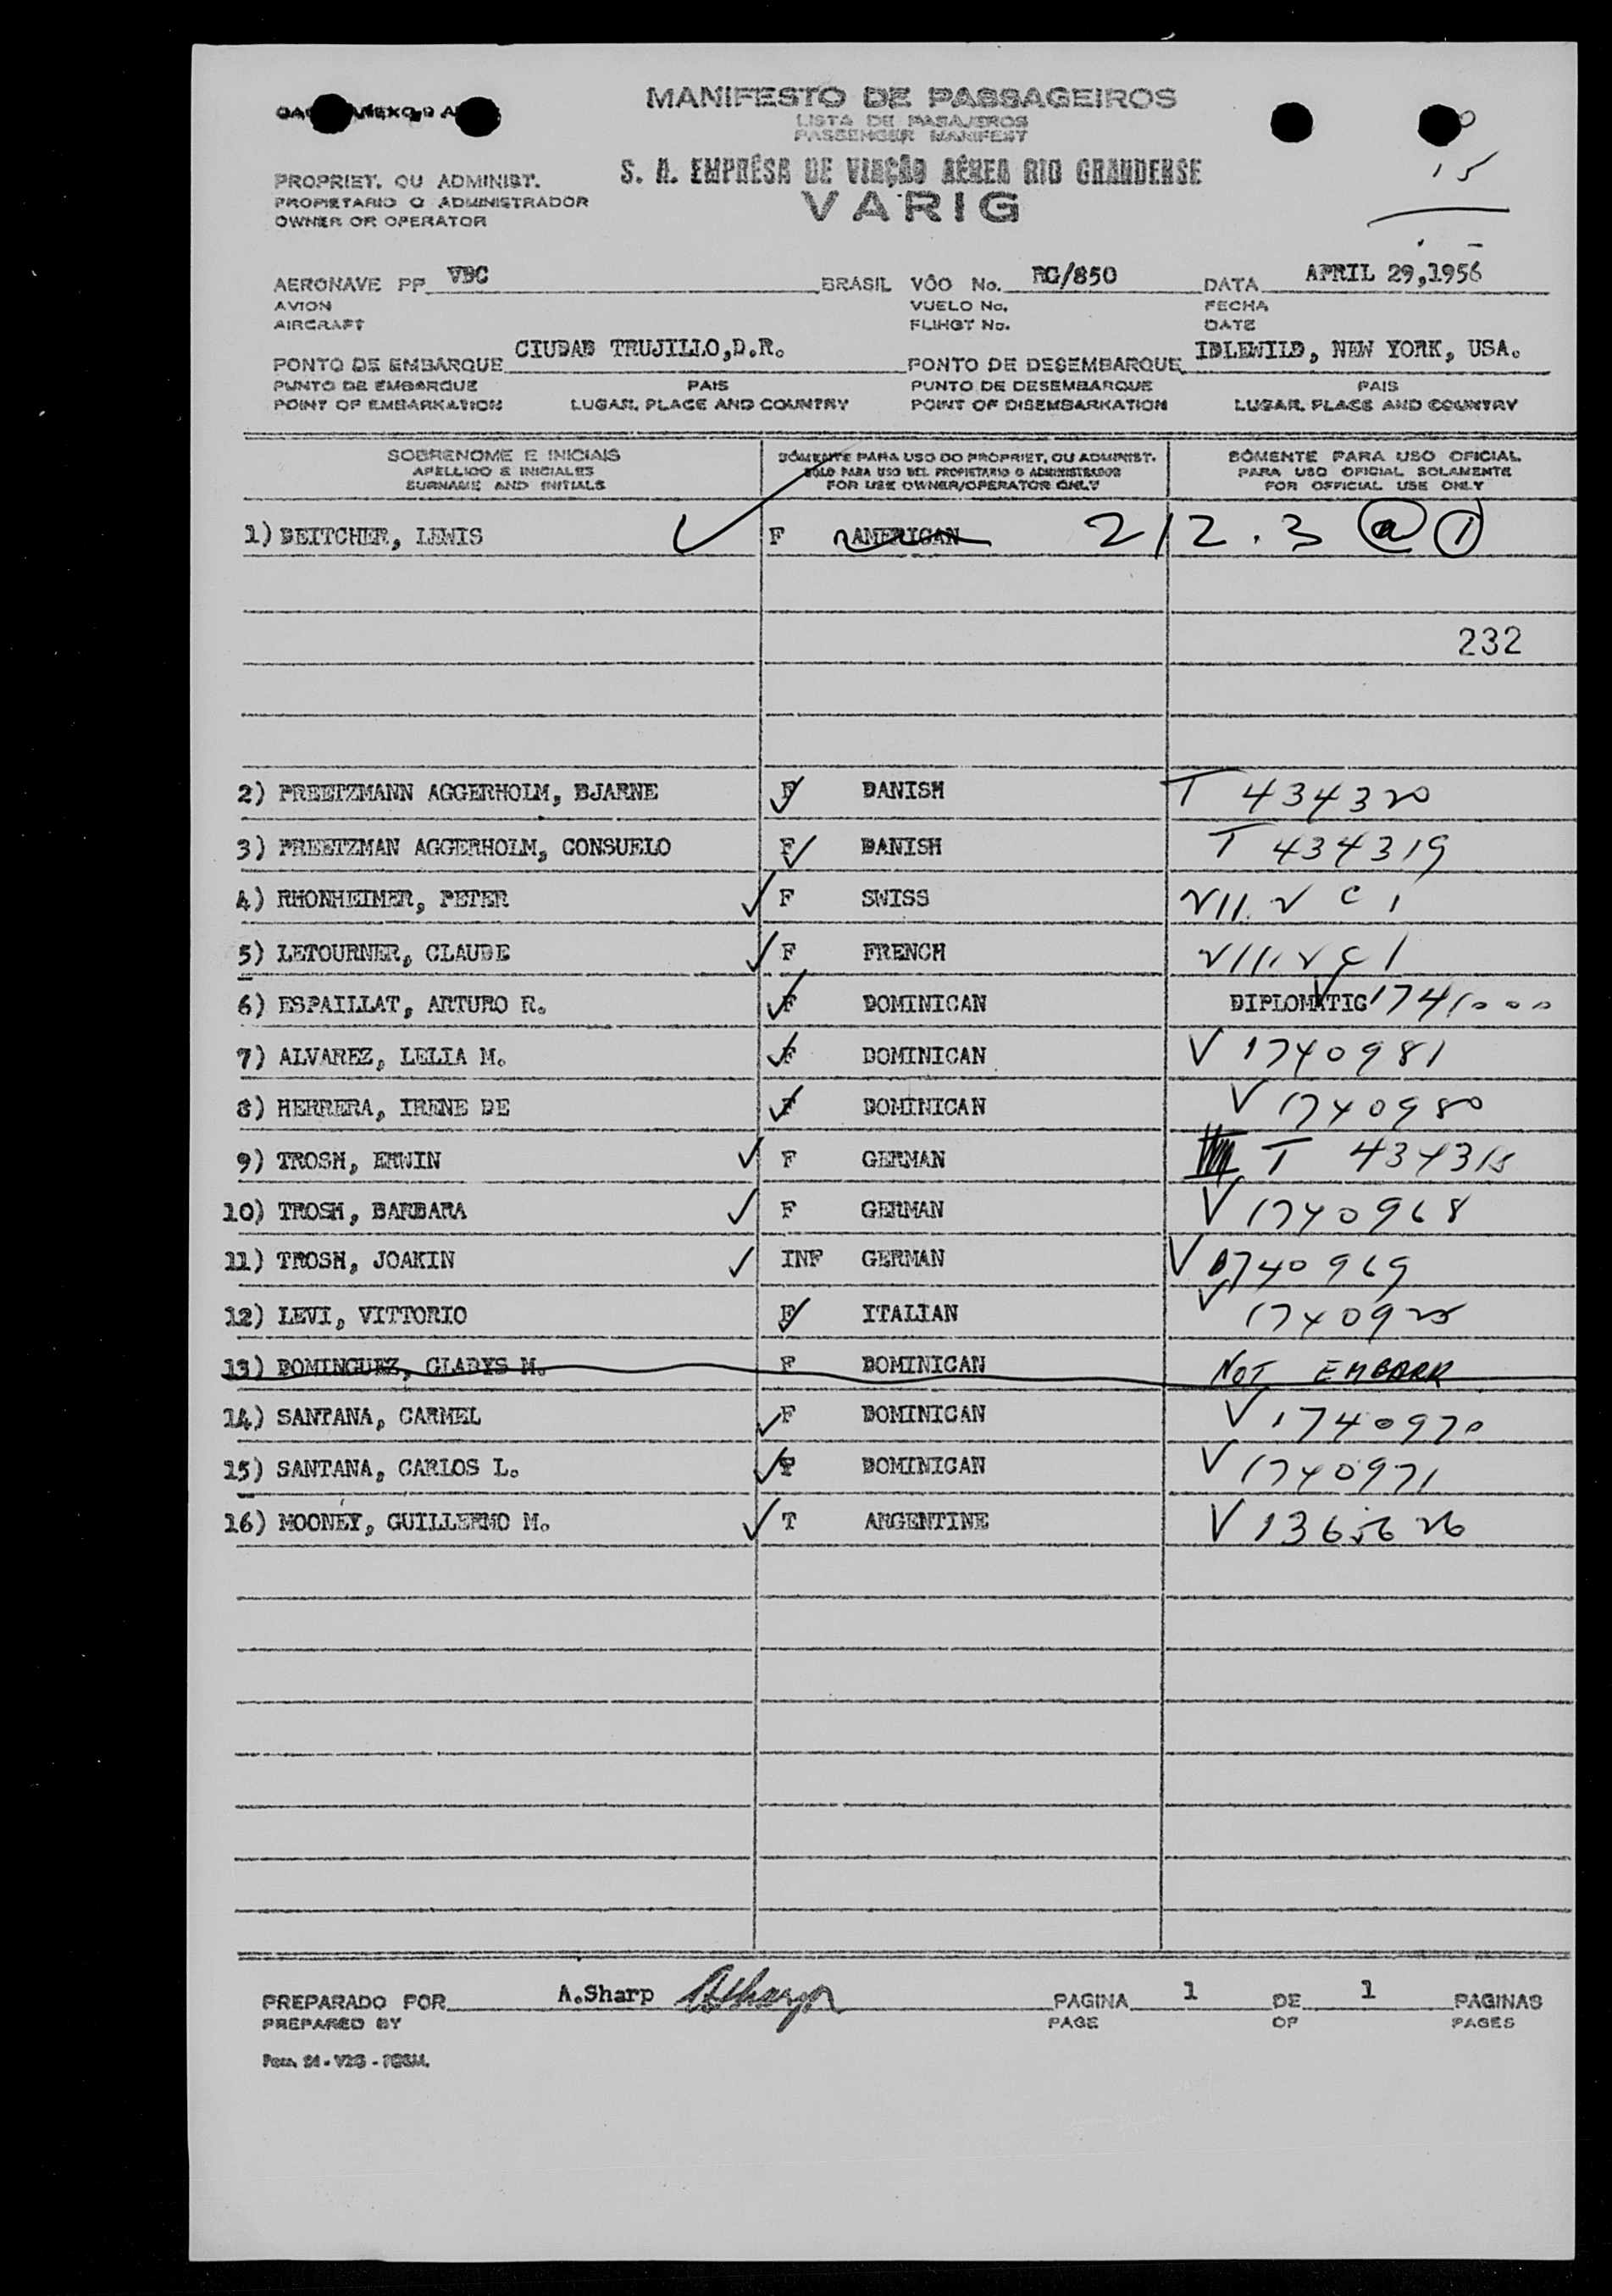 MANIFESTO DE PASSAGEIROS
LISTA DE PASAJEROS
PASSENGER MANIFEST
S. A. EMPRÊSA DE VIAÇÃO AÉREA RIO GRANDENSE
VARIG
15
PROPRIET. OU ADMINIST.
PROPIETARIO O ADMINISTRADOR
OWNER OR OPERATOR
AERONAVE PP VBC BRASIL VÔO No. RG/850 DATA APRIL 29,1956
AVION VUELO No. FECHA
AIRCRAFT FLIHGT No. DATE
PONTO DE EMBARQUE CIUDAD TRUJILLO,D.R. PONTO DE DESEMBARQUE IDLEWILD, NEW YORK, USA.
PUNTO DE EMBARQUE PAIS PUNTO DE DESEMBARQUE PAIS
POINT OF EMBARKATION LUGAR, PLACE AND COUNTRY POINT OF DISEMBARKATION LUGAR, PLACE AND COUNTRY
SOBRENOME E INICIAIS SÒMENTE PARA USO DO PROPRIET. OU ADMINIST. SÒMENTE PARA USO OFICIAL
APELLIDO E INICIALES SOLO PARA USO DEL PROPIETARIO O ADMINISTRADOR PARA USO OFICIAL SOLAMENTE
SURNAME AND INITIALS FOR USE OWNER/OPERATOR ONLY FOR OFFICIAL USE ONLY
1) DEITCHER, LEWIS F AMERICAN 212.3 a 1
232
2) PREETZMANN AGGERHOLM, BJARNE F DANISH T 434320
3) PREETZMAN AGGERHOLM, CONSUELO F DANISH T 434319
4) RHONHEIMER, PETER F SWISS
5) LETOURNER, CLAUDE F FRENCH
6) ESPAILLAT, ARTURO R. F DOMINICAN DIPLOMATIC V 1741000
7) ALVAREZ, LELIA M. F DOMINICAN V 1740981
8) HERRERA, IRENE DE F DOMINICAN V 1740980
9) TROSH, ERWIN F GERMAN T 434318
10) TROSH, BARBARA F GERMAN V 1740968
11) TROSH, JOAKIN INF GERMAN V 1740969
12) LEVI, VITTORIO F ITALIAN V 1740925
13) DOMINGUEZ, GLADYS M. F DOMINICAN NOT EMBARK
14) SANTANA, CARMEL F DOMINICAN V 1740970
15) SANTANA, CARLOS L. F DOMINICAN V 1740971
16) MOONEY, GUILLERMO M. T ARGENTINE V 1365626
PREPARADO POR A.Sharp ASharp PAGINA 1 DE 1 PAGINAS
PREPARED BY PAGE OF PAGES